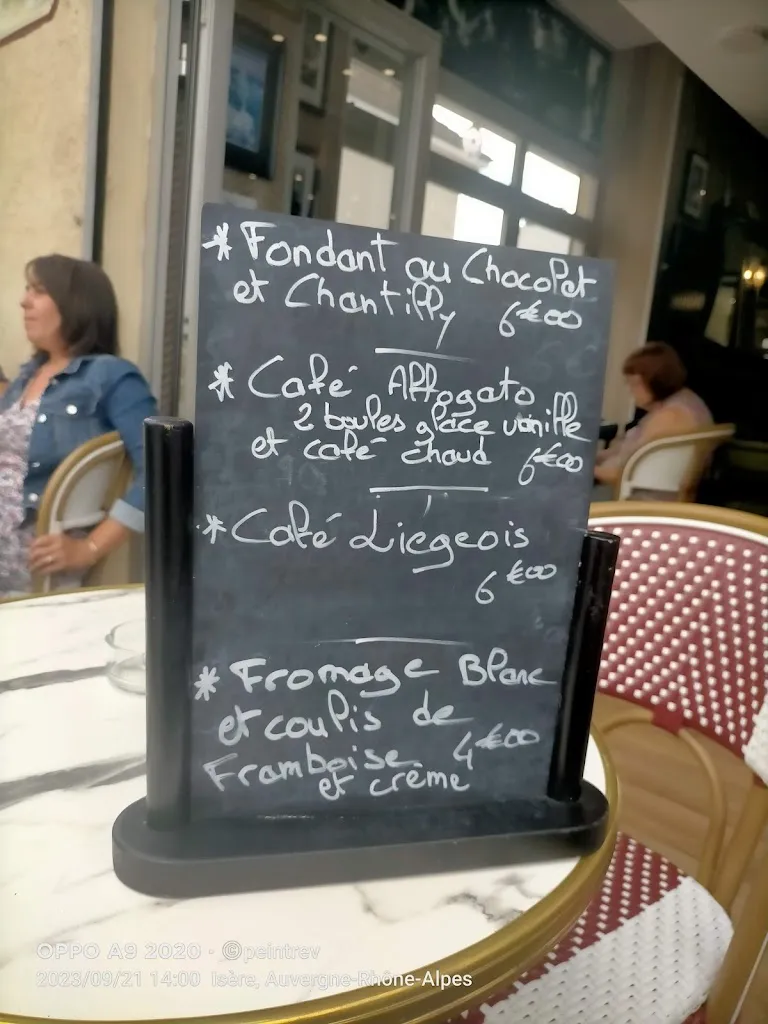 * Fondant au Chocolat
et Chantilly 6€00
* Café Affogato
2 boules glace vanille
et café chaud 6€00
* Café Liegeois
6€00
* Fromage Blanc
et coulis de
Framboise 4€00
et crème
OPPO A9 2020 · ©peintrev
2023/09/21 14:00 Isère, Auvergne-Rhône-Alpes